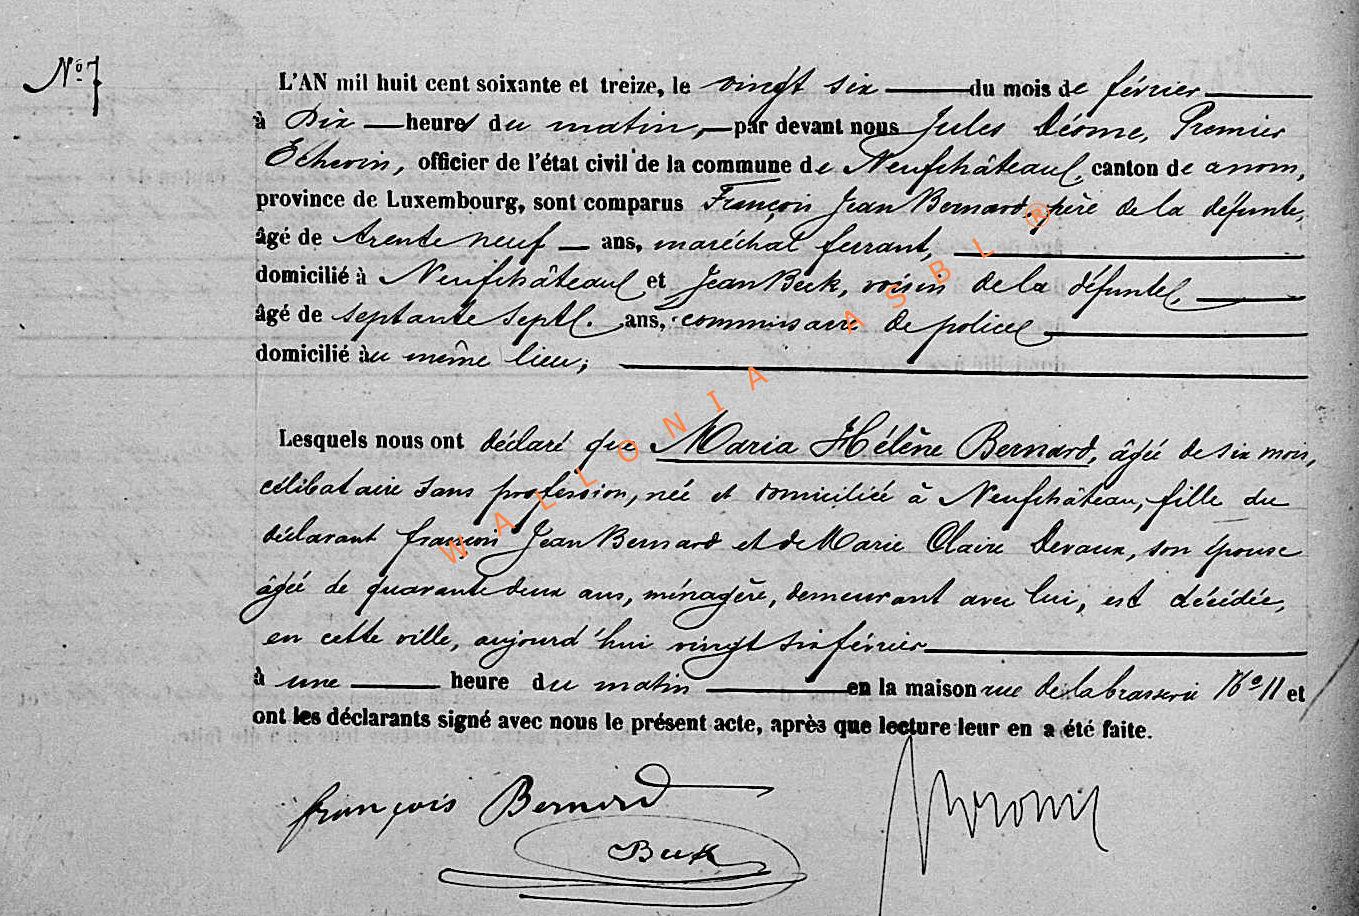 Nº 7
L'AN mil huit cent soixante et treize, le vingt six du mois de février
à Dix heures du matin, par devant nous Jules Désme, Premier
Echevin, officier de l'état civil de la commune de Neufchâteau, canton de a nom,
province de Luxembourg, sont comparus François Jean Bernard, père de la défunte,
âgé de trente neuf ans, maréchal ferrant,
domicilié à Neufchâteau et Jean Beck, voisin de la défunte,
âgé de septante sept ans, commissaire de police
domicilié au même lieu;
Lesquels nous ont déclaré que Maria Hélène Bernard, âgée de six mois,
célibataire sans profession, née et domiciliée à Neufchâteau, fille du
déclarant françois Jean Bernard et de Marie Claire Devaux, son épouse
âgée de quarante deux ans, ménagère, demeurant avec lui, est décédée,
en cette ville, aujourd'hui vingt six février
à une heure du matin en la maison rue de la brasserie Nº 11 et
ont les déclarants signé avec nous le présent acte, après que lecture leur en a été faite.
françois Bernard
Beck
WALLONIA ASBL ®